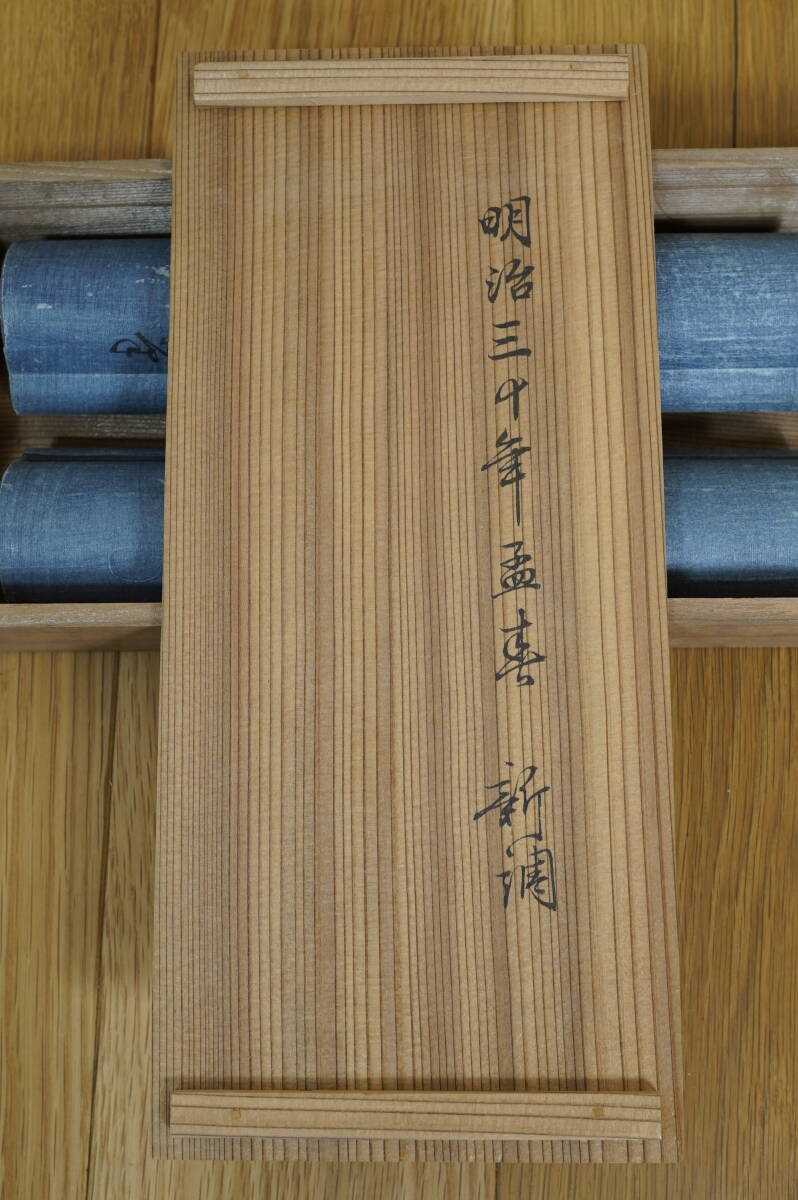 明治三十年孟春 新調